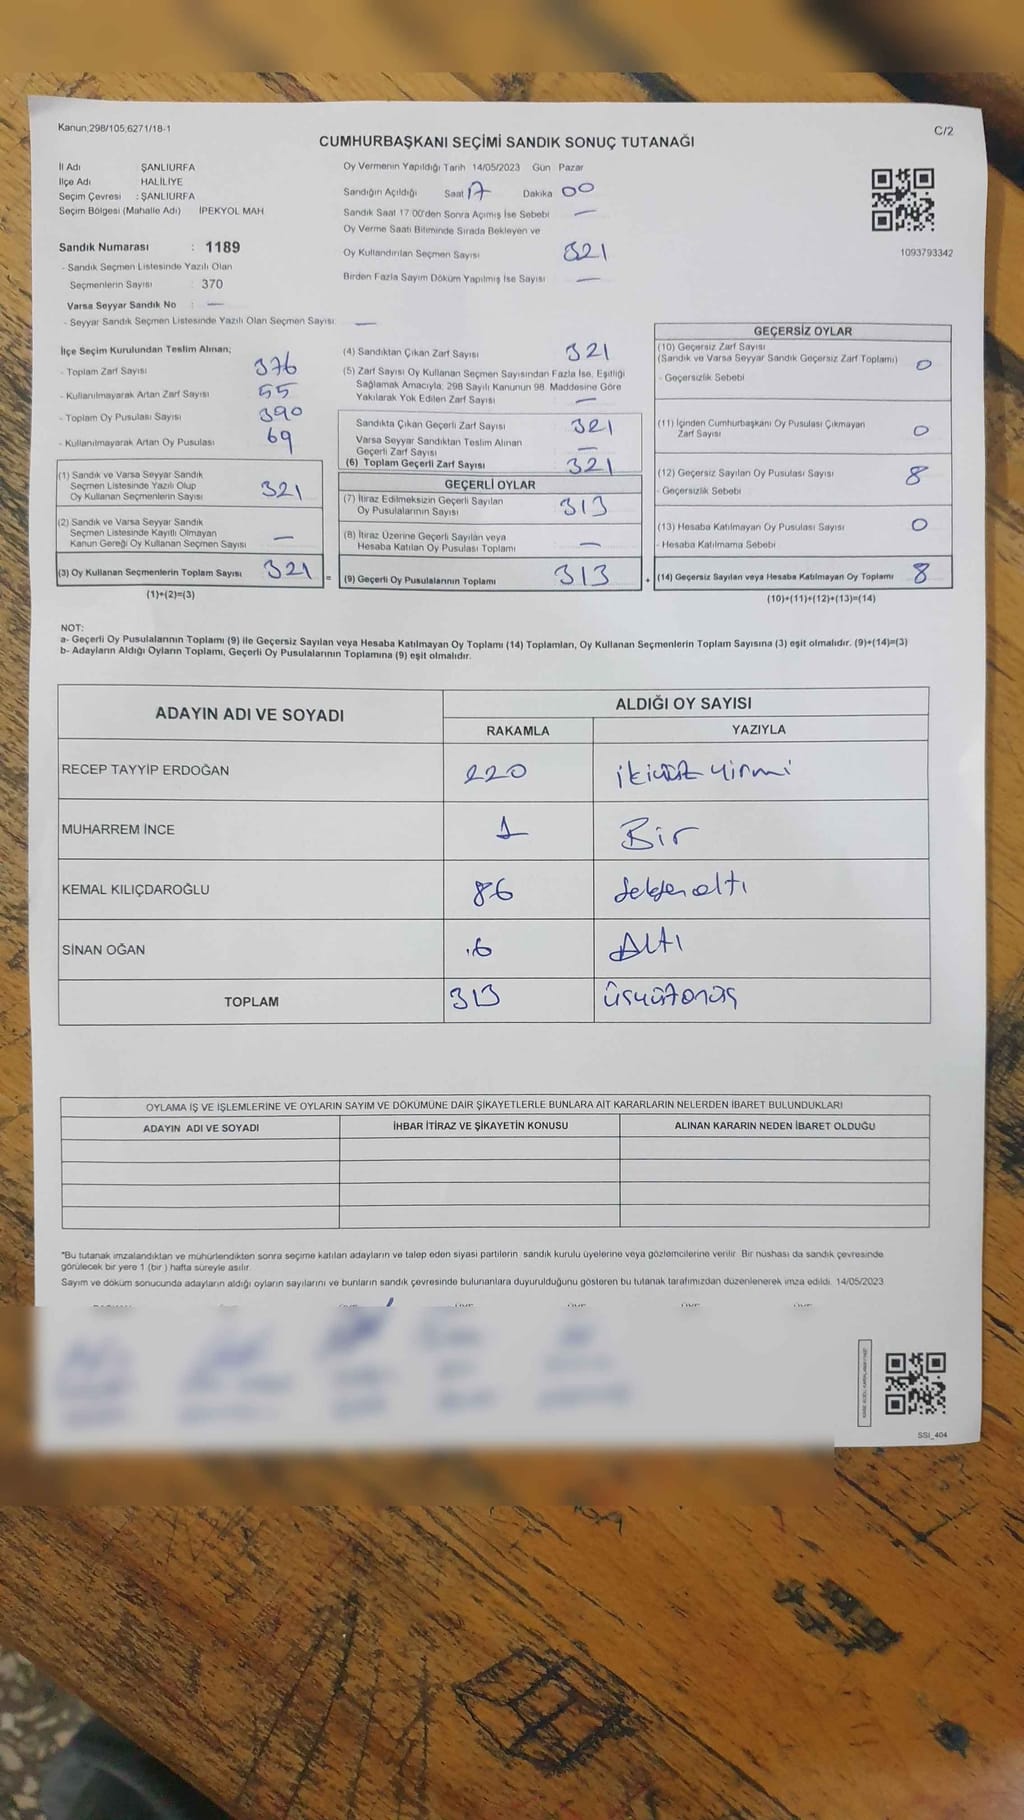 Kanun;298/105;6271/18-1
C/2
CUMHURBAŞKANI SEÇİMİ SANDIK SONUÇ TUTANAĞI
İl Adı ŞANLIURFA
İlçe Adı HALİLİYE
Seçim Çevresi : ŞANLIURFA
Seçim Bölgesi (Mahalle Adı) İPEKYOL MAH
Sandık Numarası : 1189
- Sandık Seçmen Listesinde Yazılı Olan
Seçmenlerin Sayısı 370
Varsa Seyyar Sandık No : —
- Seyyar Sandık Seçmen Listesinde Yazılı Olan Seçmen Sayısı: —
Oy Vermenin Yapıldığı Tarih 14/05/2023 Gün Pazar
Sandığın Açıldığı Saat 17 Dakika 00
Sandık Saat 17 00'den Sonra Açımış İse Sebebi —
Oy Verme Saati Bitiminde Sırada Bekleyen ve
Oy Kullandırılan Seçmen Sayısı 321
Birden Fazla Sayım Döküm Yapılmış İse Sayısı —
1093793342
İlçe Seçim Kurulundan Teslim Alınan;
- Toplam Zarf Sayısı 376
- Kullanılmayarak Artan Zarf Sayısı 55
- Toplam Oy Pusulası Sayısı 390
- Kullanılmayarak Artan Oy Pusulası 69
(1) Sandık ve Varsa Seyyar Sandık
Seçmen Listesinde Yazılı Olup
Oy Kullanan Seçmenlerin Sayısı 321
(2) Sandık ve Varsa Seyyar Sandık
Seçmen Listesinde Kayıtlı Olmayan
Kanun Gereği Oy Kullanan Seçmen Sayısı —
(3) Oy Kullanan Seçmenlerin Toplam Sayısı 321 =
(1)+(2)=(3)
(4) Sandıktan Çıkan Zarf Sayısı 321
(5) Zarf Sayısı Oy Kullanan Seçmen Sayısından Fazla İse, Eşitliği
Sağlamak Amacıyla; 298 Sayılı Kanunun 98. Maddesine Göre
Yakılarak Yok Edilen Zarf Sayısı —
Sandıkta Çıkan Geçerli Zarf Sayısı 321
Varsa Seyyar Sandıktan Teslim Alınan
Geçerli Zarf Sayısı —
(6) Toplam Geçerli Zarf Sayısı 321
GEÇERLİ OYLAR
(7) İtiraz Edilmeksizin Geçerli Sayılan
Oy Pusulalarının Sayısı 313
(8) İtiraz Üzerine Geçerli Sayılan veya
Hesaba Katılan Oy Pusulası Toplamı —
(9) Geçerli Oy Pusulalarının Toplamı 313 +
GEÇERSİZ OYLAR
(10) Geçersiz Zarf Sayısı
(Sandık ve Varsa Seyyar Sandık Geçersiz Zarf Toplamı) 0
- Geçersizlik Sebebi
(11) İçinden Cumhurbaşkanı Oy Pusulası Çıkmayan
Zarf Sayısı 0
(12) Geçersiz Sayılan Oy Pusulası Sayısı 8
- Geçersizlik Sebebi
(13) Hesaba Katılmayan Oy Pusulası Sayısı 0
- Hesaba Katılmama Sebebi
(14) Geçersiz Sayılan veya Hesaba Katılmayan Oy Toplamı 8
(10)+(11)+(12)+(13)=(14)
NOT:
a- Geçerli Oy Pusulalarının Toplamı (9) ile Geçersiz Sayılan veya Hesaba Katılmayan Oy Toplamı (14) Toplamları, Oy Kullanan Seçmenlerin Toplam Sayısına (3) eşit olmalıdır. (9)+(14)=(3)
b- Adayların Aldığı Oyların Toplamı, Geçerli Oy Pusulalarının Toplamına (9) eşit olmalıdır.
ADAYIN ADI VE SOYADI ALDIĞI OY SAYISI
RAKAMLA YAZIYLA
RECEP TAYYİP ERDOĞAN 220 ikiyüz yirmi
MUHARREM İNCE 1 Bir
KEMAL KILIÇDAROĞLU 86 Seksenaltı
SİNAN OĞAN .6 Altı
TOPLAM 313 üçyüzonüç
OYLAMA İŞ VE İŞLEMLERİNE VE OYLARIN SAYIM VE DÖKÜMÜNE DAİR ŞİKAYETLERLE BUNLARA AİT KARARLARIN NELERDEN İBARET BULUNDUKLARI
ADAYIN ADI VE SOYADI İHBAR İTİRAZ VE ŞİKAYETİN KONUSU ALINAN KARARIN NEDEN İBARET OLDUĞU
*Bu tutanak imzalandıktan ve mühürlendikten sonra seçime katılan adayların ve talep eden siyasi partilerin sandık kurulu üyelerine veya gözlemcilerine verilir. Bir nüshası da sandık çevresinde
görülecek bir yere 1 (bir ) hafta süreyle asılır.
Sayım ve döküm sonucunda adayların aldığı oyların sayılarını ve bunların sandık çevresinde bulunanlara duyurulduğunu gösteren bu tutanak tarafımızdan düzenlenerek imza edildi. 14/05/2023
SSI_404